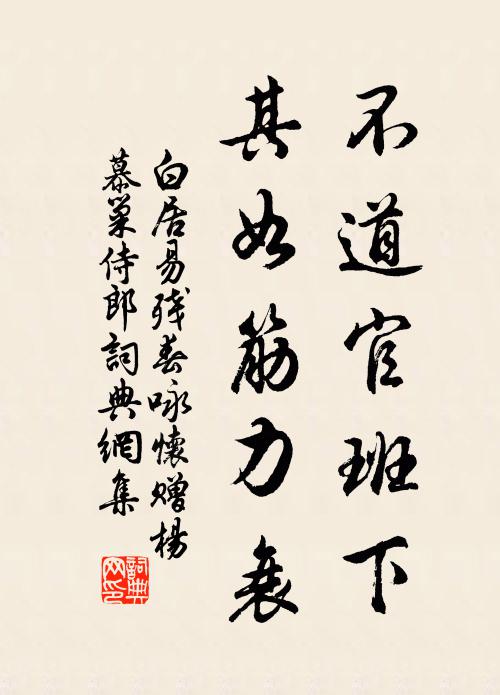 不道官班下
其如筋力衰
白居易残春咏懷赠楊
慕巢侍郎詞典網集
詞典网印